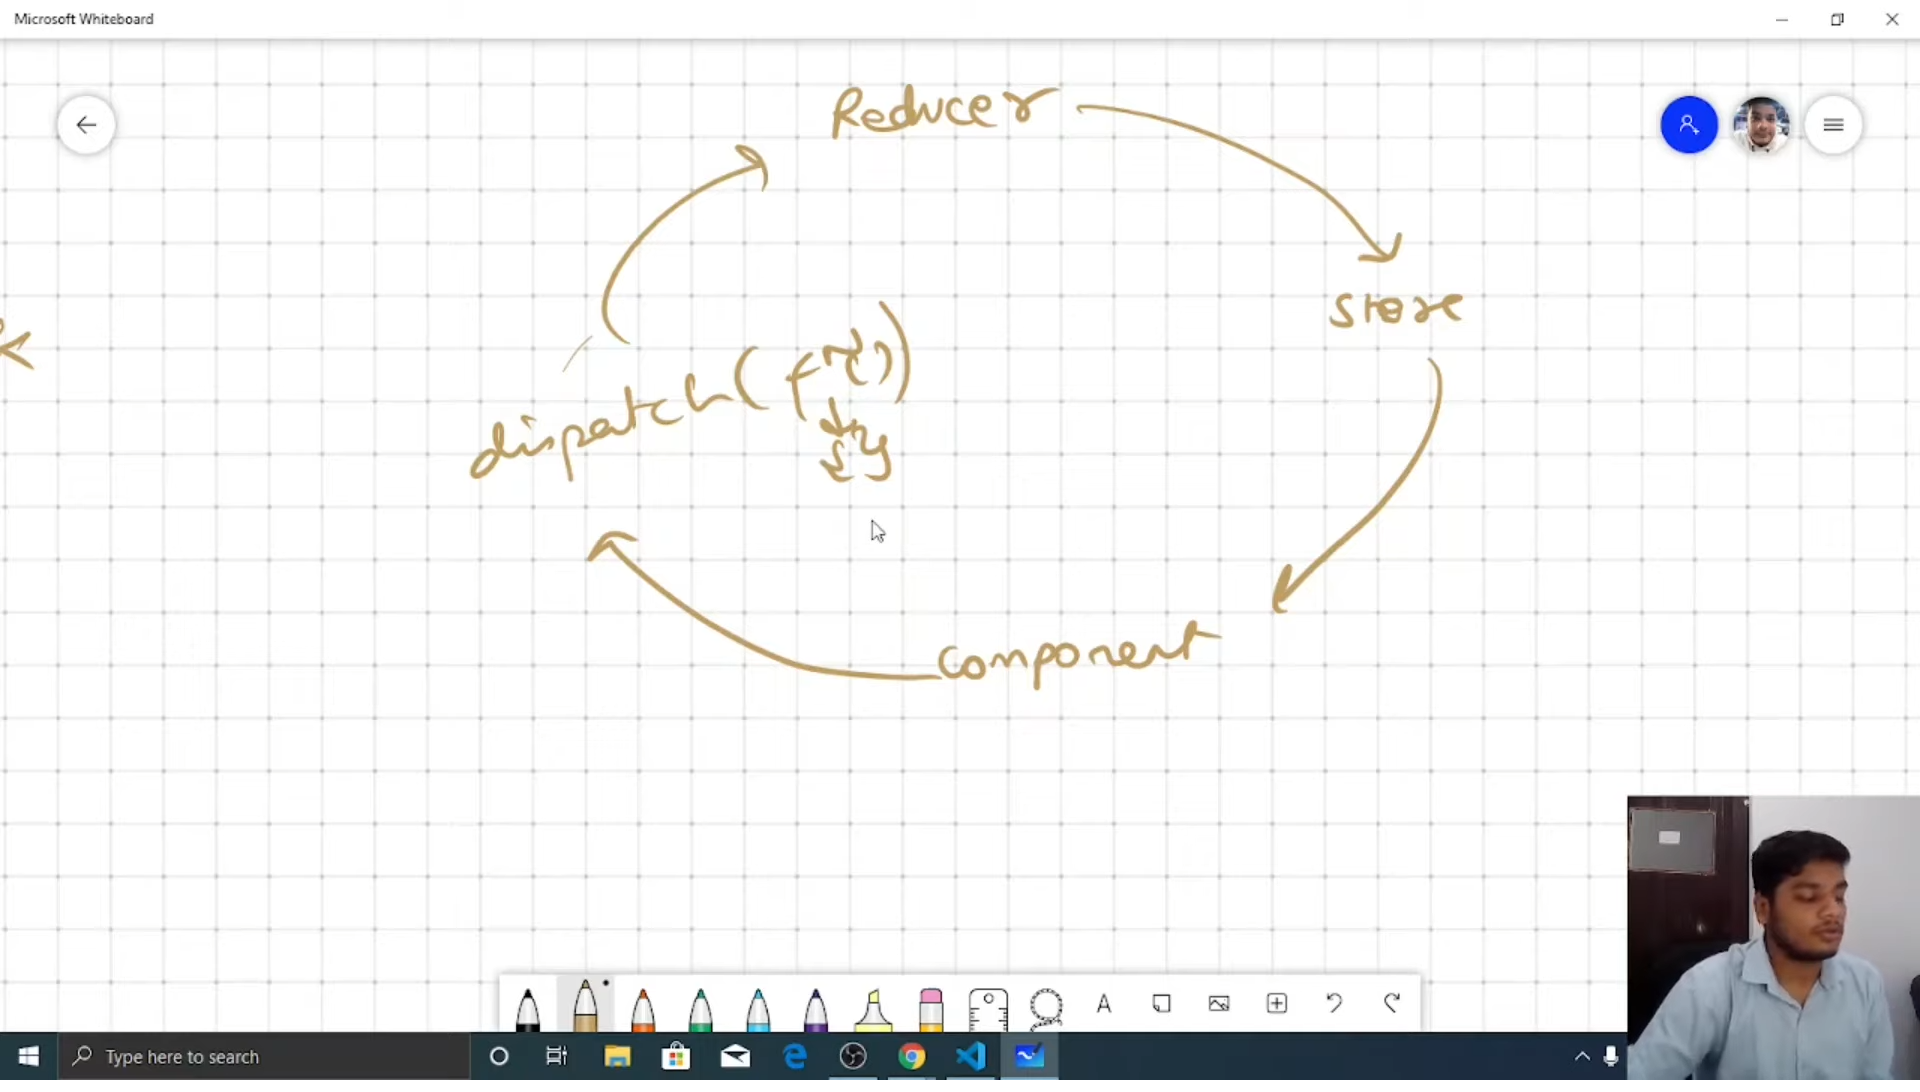 Microsoft Whiteboard
Reducer
store
dispatch(
component
A
Type here to search